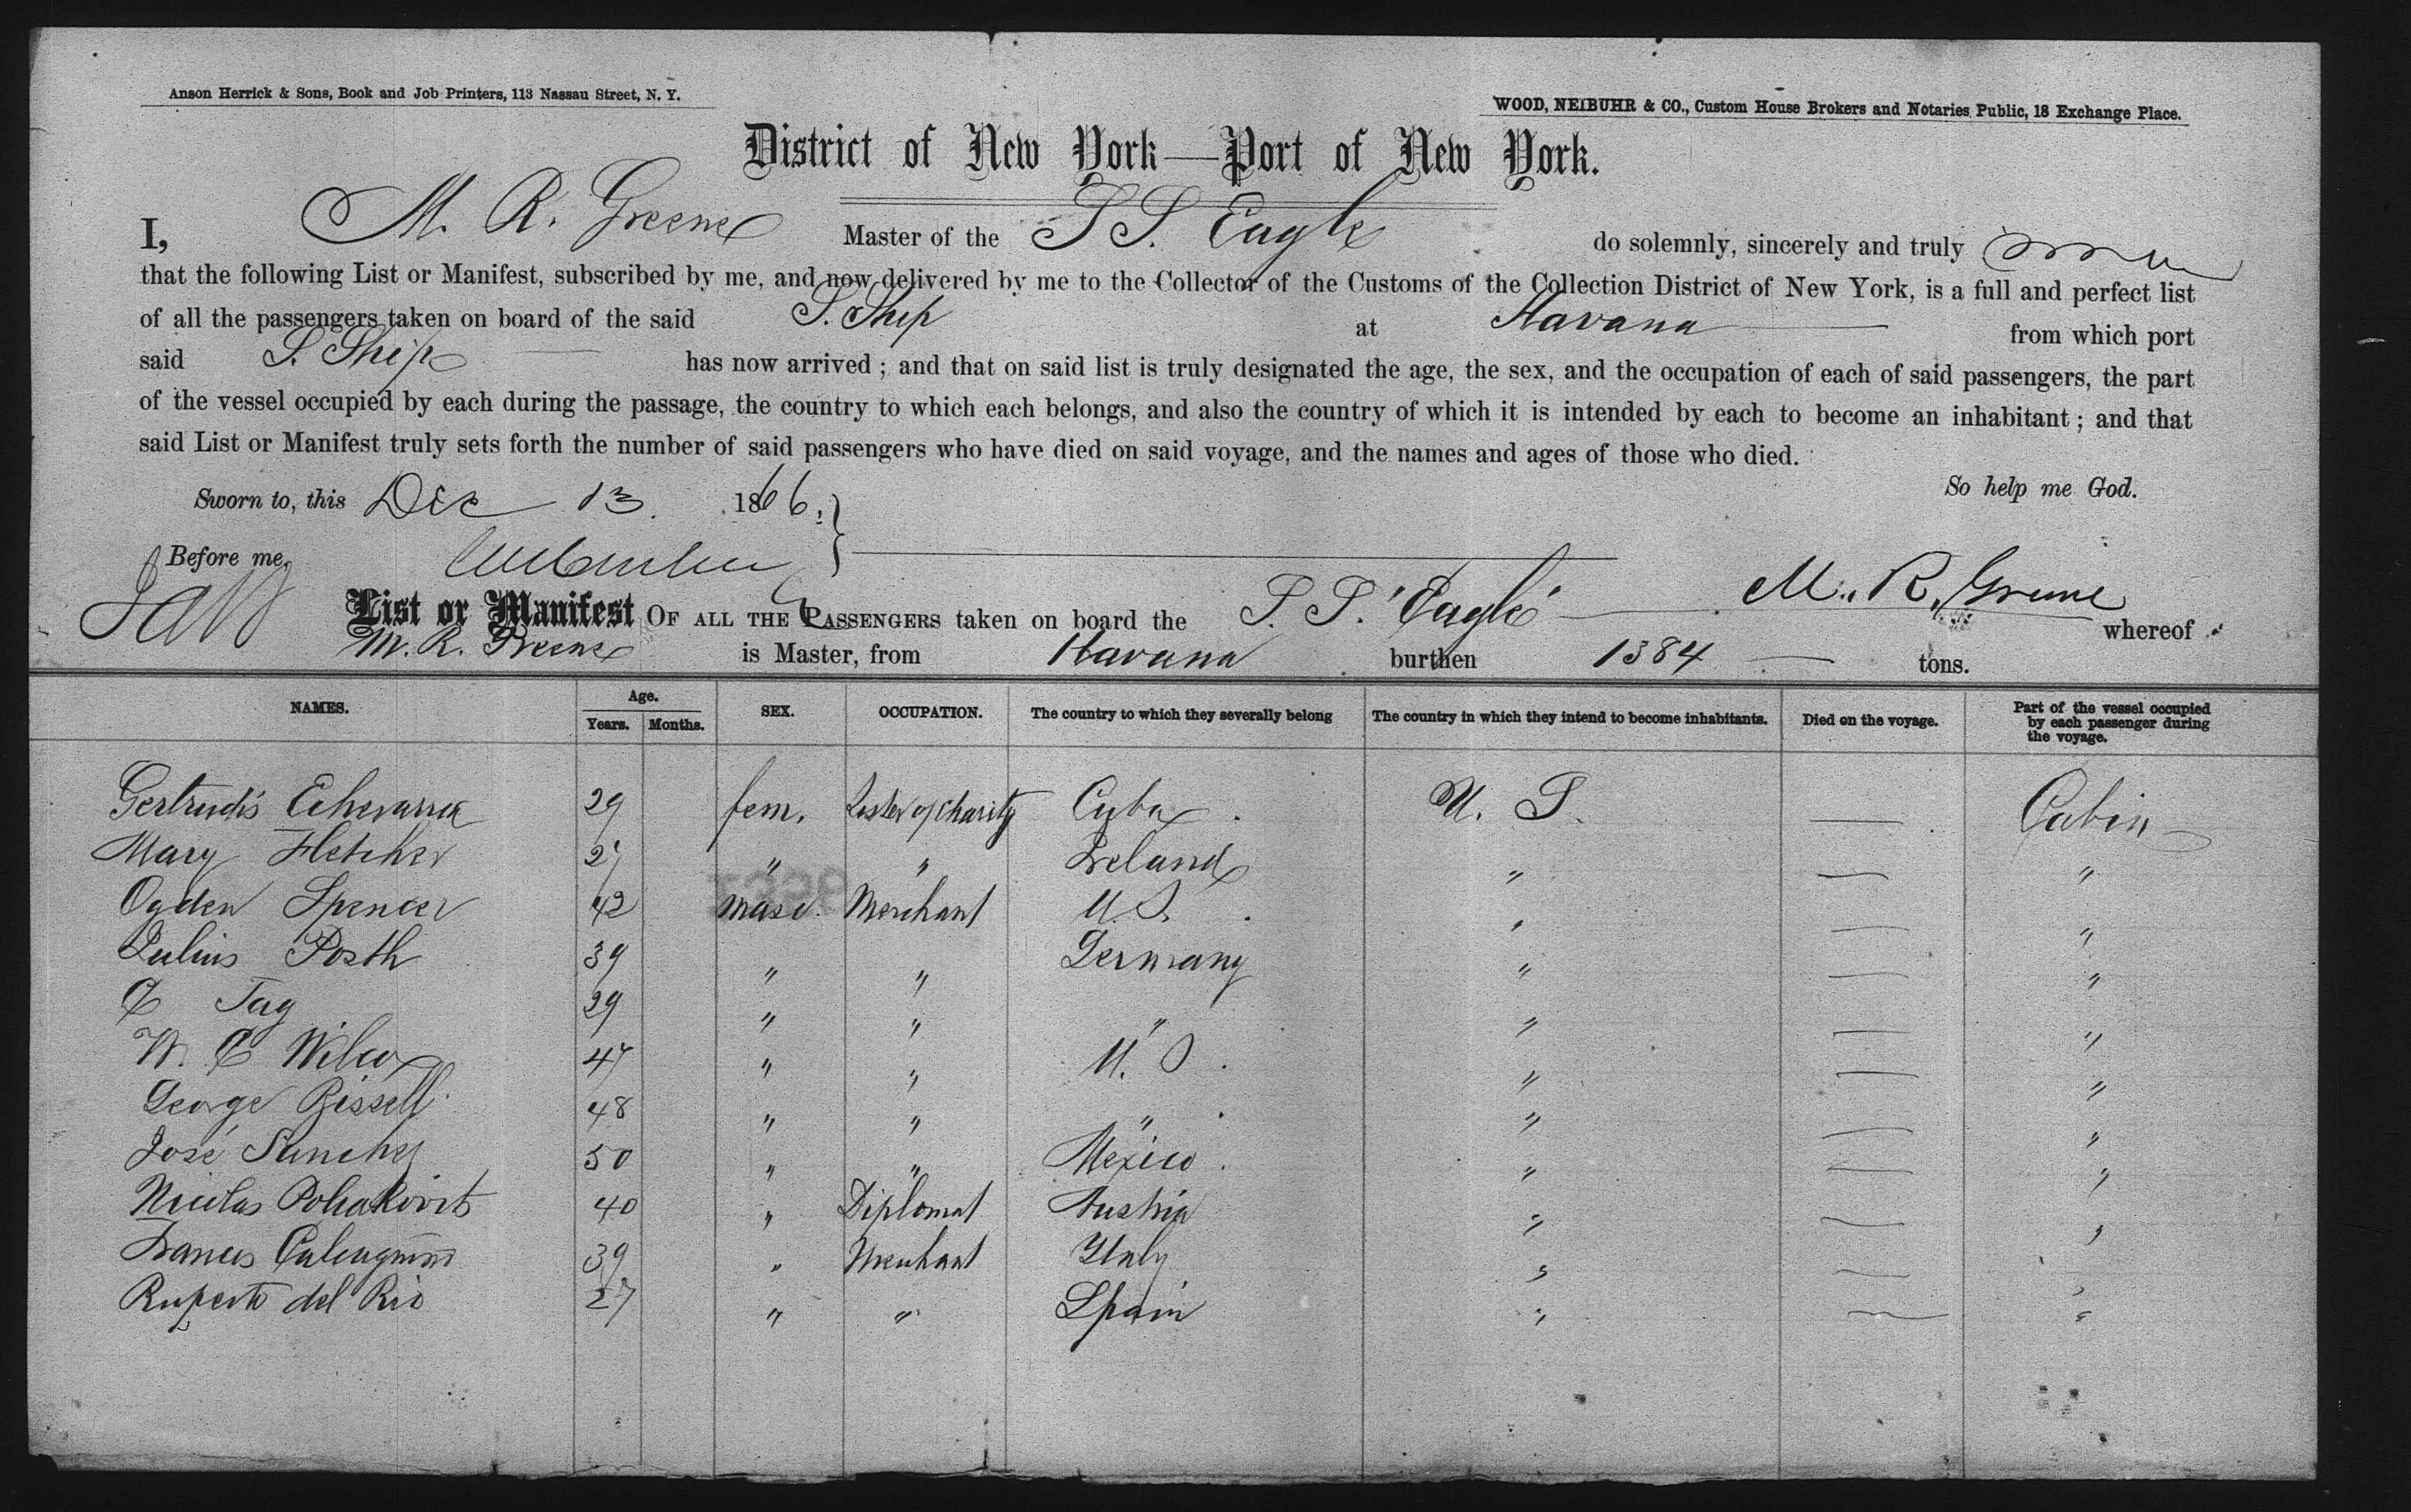 Anson Herrick & Sons, Book and Job Printers, 113 Nassau Street, N. Y.
WOOD, NEIBUHR & CO., Custom House Brokers and Notaries Public, 18 Exchange Place.
District of New York—Port of New York.
I, M. R. Greene Master of the S S. Eagle do solemnly, sincerely and truly
that the following List or Manifest, subscribed by me, and now delivered by me to the Collector of the Customs of the Collection District of New York, is a full and perfect list
of all the passengers taken on board of the said S. Ship at Havana from which port
said S. Ship has now arrived ; and that on said list is truly designated the age, the sex, and the occupation of each of said passengers, the part
of the vessel occupied by each during the passage, the country to which each belongs, and also the country of which it is intended by each to become an inhabitant ; and that
said List or Manifest truly sets forth the number of said passengers who have died on said voyage, and the names and ages of those who died.
So help me God.
Sworn to, this Dec 13. 1866,
Before me,
M. R. Greene
List or Manifest OF ALL THE PASSENGERS taken on board the S. S. "Eagle" whereof
M. R. Greene is Master, from Havana burthen 1384 tons.
NAMES. Age. Years. Months. SEX. OCCUPATION. The country to which they severally belong The country in which they intend to become inhabitants. Died on the voyage. Part of the vessel occupied by each passenger during the voyage.
Gertrudis Echevarria 29 fem. Sister of Charity Cuba U. S. — Cabin
Mary Fletcher 27 " " Ireland " — "
Ogden Spencer 42 Masc. Merchant U. S. " — "
Julius Posth 39 " " Germany " — "
C Tag 29 " " " " — "
W. C Wilcox 47 " " U. S. " — "
George Bissell 48 " " " " — "
José Sanchez 50 " " Mexico " — "
Nicolas Poliakovits 40 " Diplomat Austria " — "
Frances 39 " Merchant Italy " — "
Ruperto del Rio 27 " " Spain " — "